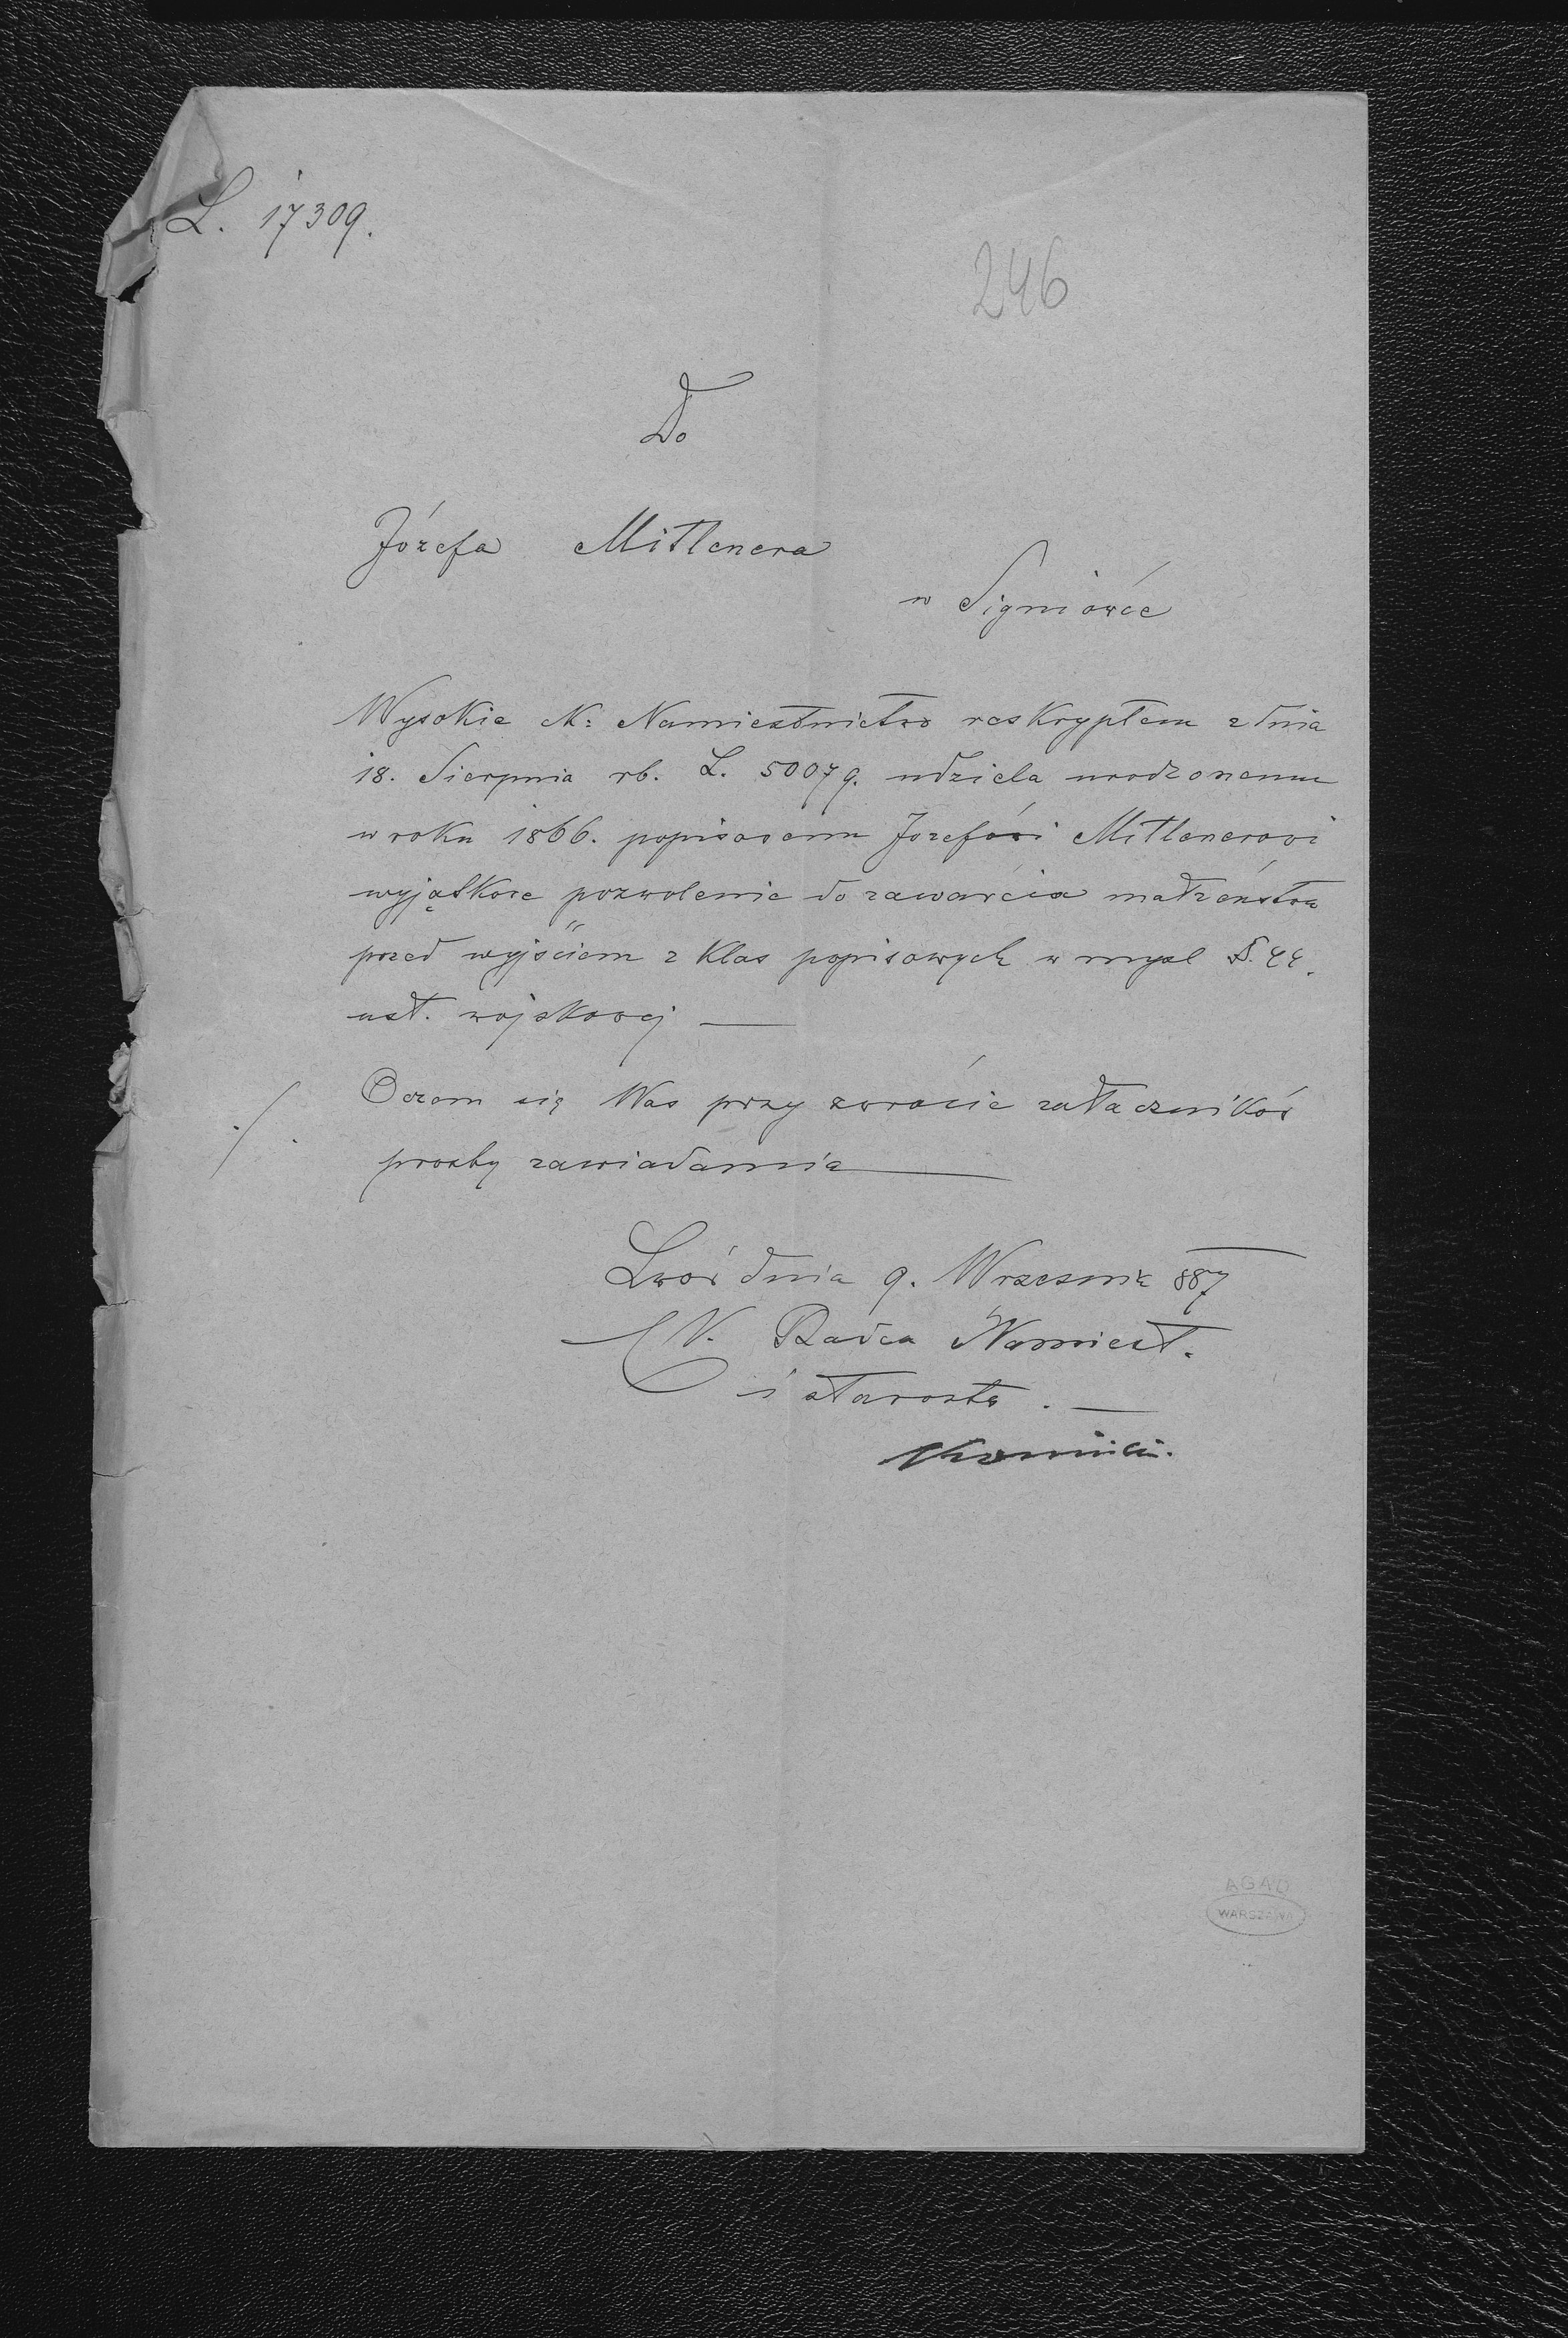 L. 17309.
246
Do
Józefa Mitlenera
w Signiówce
Wysokie ck: Namiestnictwo reskryptem z dnia
18. Sierpnia rb. L. 50079. udziela urodzonemu
w roku 1866. popisowemu Józefowi Mitlenerowi
wyjątkowe pozwolenie do zawarcia małżeństwa
przed wyjściem z klas popisowych w mysl §. 44.
ust. wojskowej —
./.
O czem się Was przy zwrocie załaczników
prosby zawiadamia —
Lwów dnia 9. Wrzesnia 887
Radca Namiest.
i starosta. —
AGAD
WARSZAWA